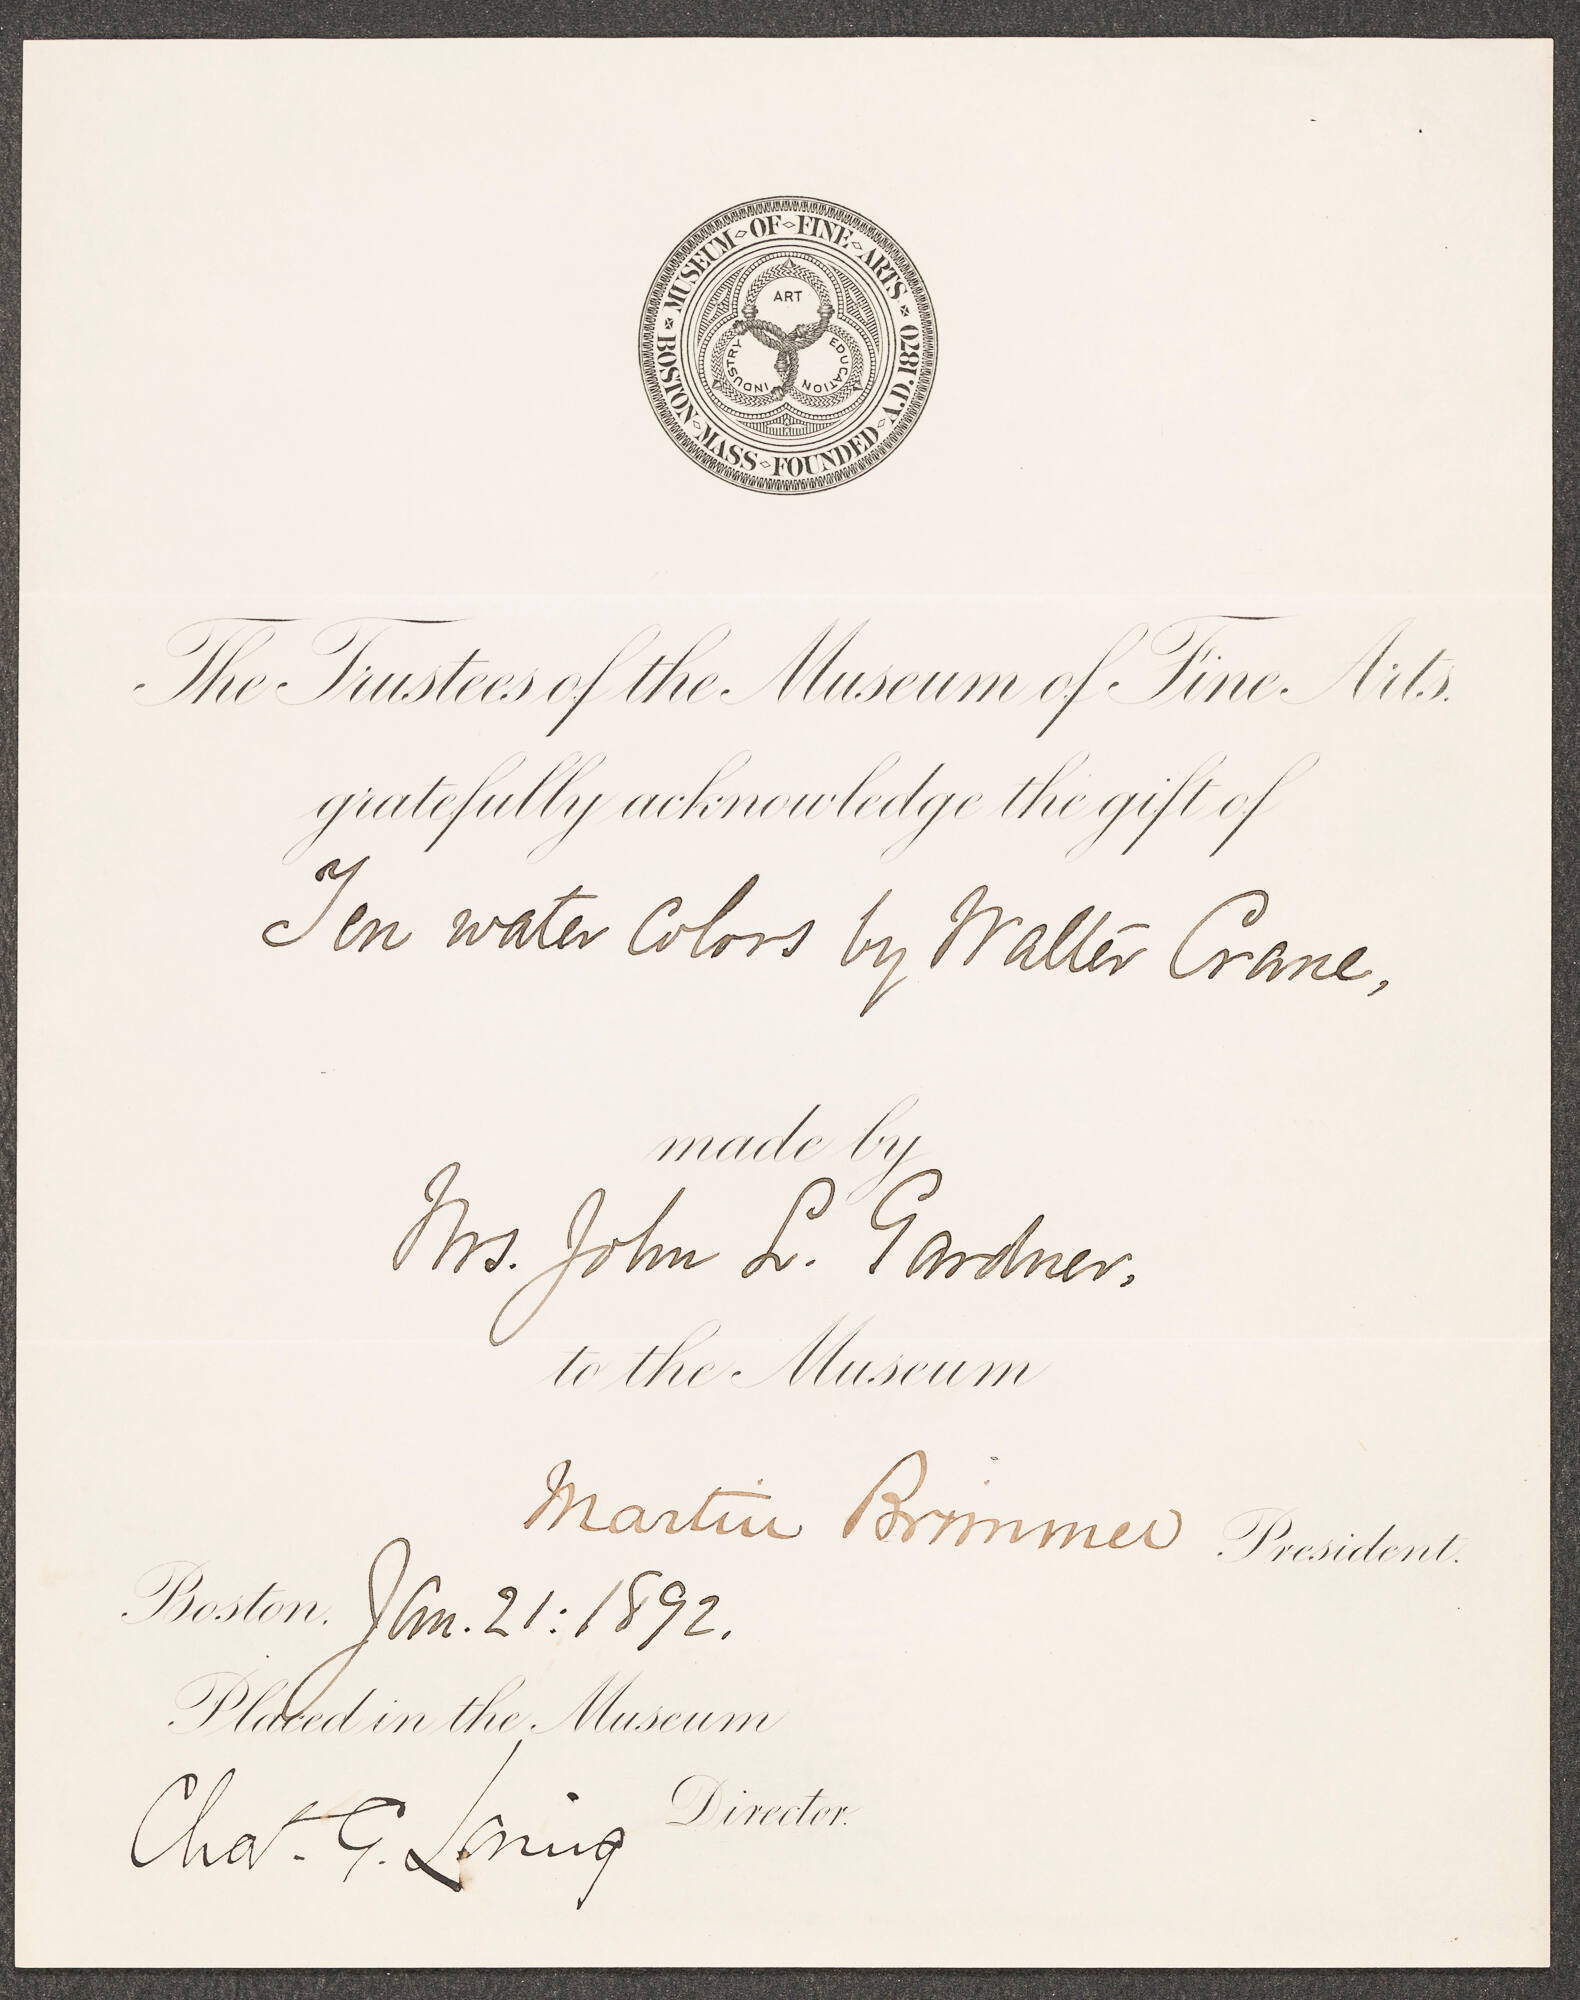 MUSEUM OF FINE ARTS
BOSTON MASS FOUNDED A.D. 1870
ART
INDUSTRY
EDUCATION
The Trustees of the Museum of Fine Arts.
gratefully acknowledge the gift of
Ten water colors by Walter Crane,
made by
Mrs. John L. Gardner,
to the Museum
Martin Brimmer President.
Boston. Jan. 21: 1892.
Placed in the Museum
Chas. G. Loring Director.